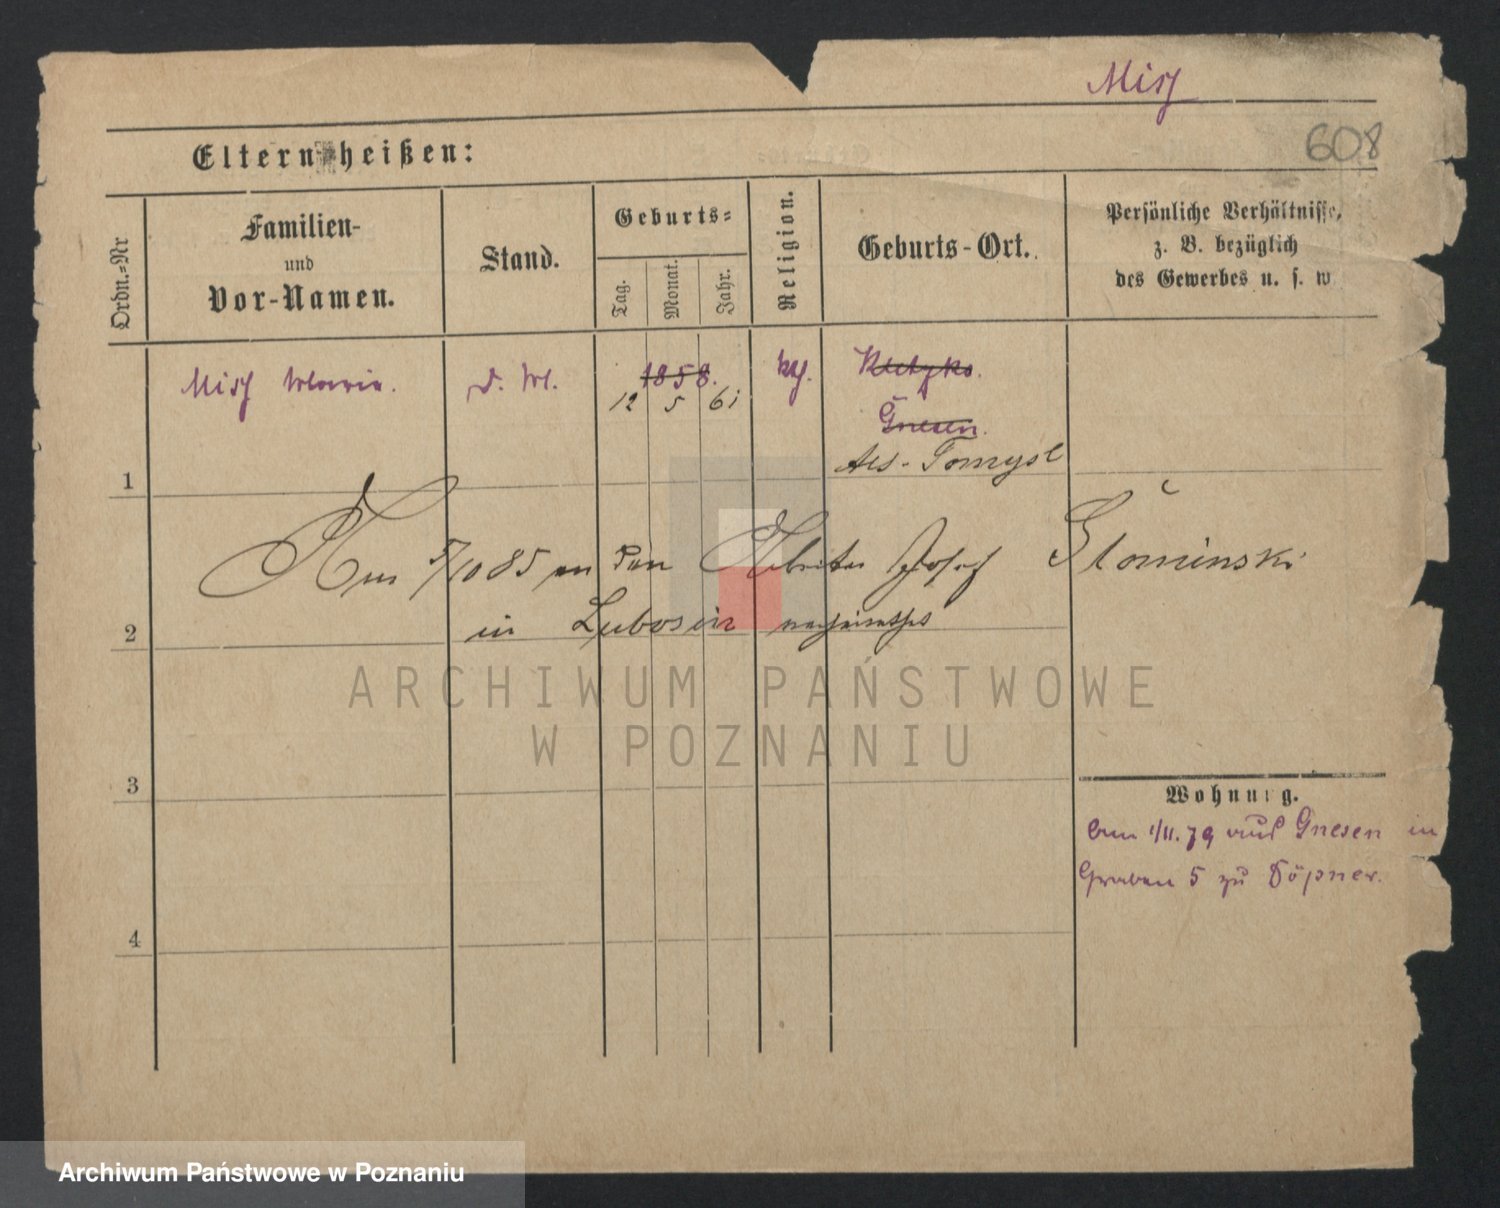 Misch
608
Eltern heißen:
Ordn.-Nr
Familien-
und
Vor-Namen.
Stand.
Geburts-
Tag.
Monat.
Jahr.
Religion.
Geburts-Ort.
Persönliche Verhältnisse,
z. B. bezüglich
des Gewerbes u. s. w.
Misch Maria.
d. M.
1858.
12 5 61
kth.
Kletzko.
Gnesen.
Alt-Tomysl
1
5/10 85 an den Arbeiter Josef Slominski
2
in Lubosin verheirathet
ARCHIWUM PAŃSTWOWE
W POZNANIU
3
Wohnung.
Am 1/11. 79 aus Gnesen in
Graben 5 zu Döpner.
4
Archiwum Państwowe w Poznaniu